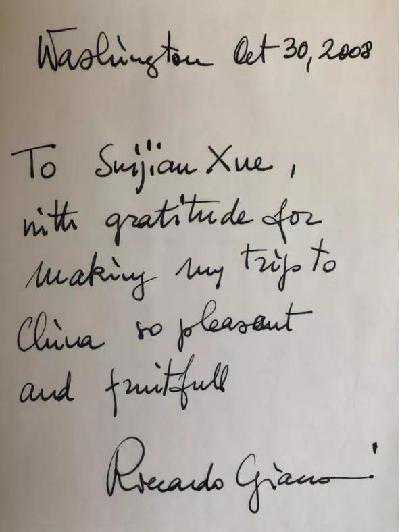 Washington Oct 30, 2008
To Suijian Xue,
with gratitude for
making my trips to
China so pleasant
and fruitfull
Riccardo Giacconi